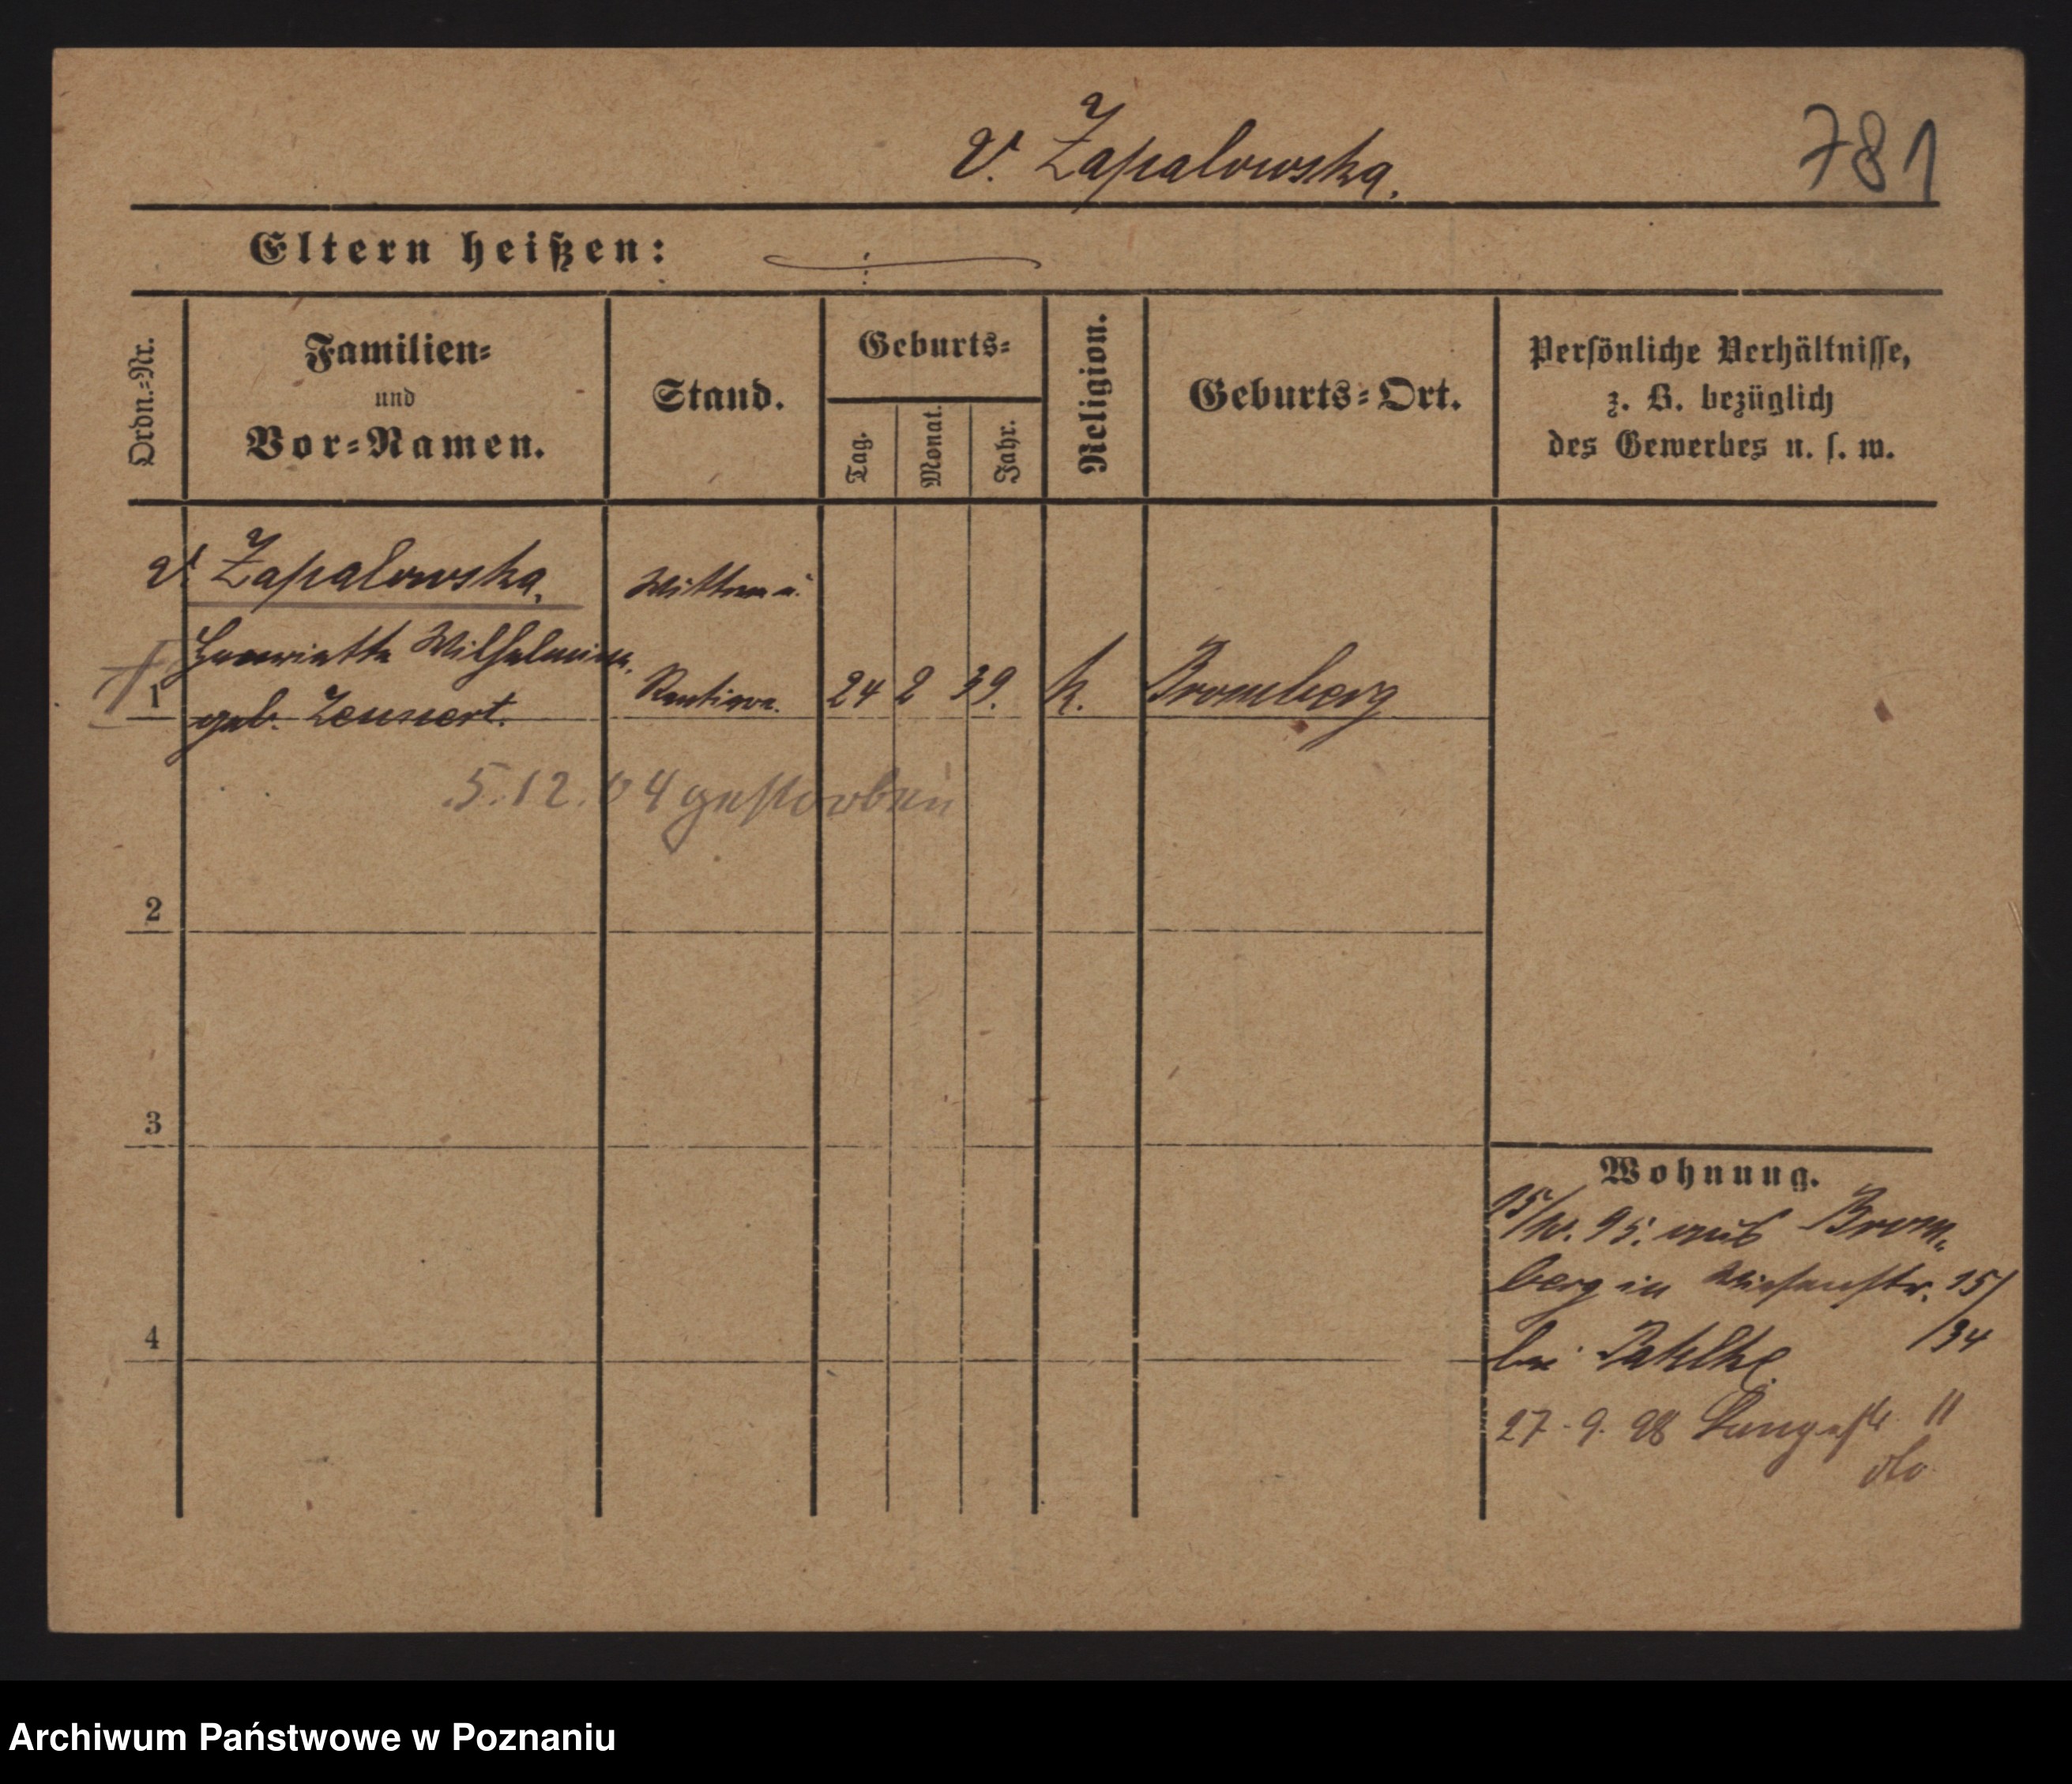 v. Zapalowska.
781
Eltern heißen:
Ordn.=Nr.
Familien=
und
Vor=Namen.
Stand.
Geburts=
Tag.
Monat.
Jahr.
Religion.
Geburts=Ort.
Persönliche Verhältnisse,
z. B. bezüglich
des Gewerbes u. s. w.
v. Zapalowska,
Henriette Wilhelmine,
geb. Zennert.
Wittwe u.
Rentiere.
1
24 2 39. k. Bromberg
5.12.04 gestorben
2
3
4
Wohnung.
95. aus Brom=
berg in Wiesenstr. 15/
bei Pahlke /34
27.9.98 Langestr 11